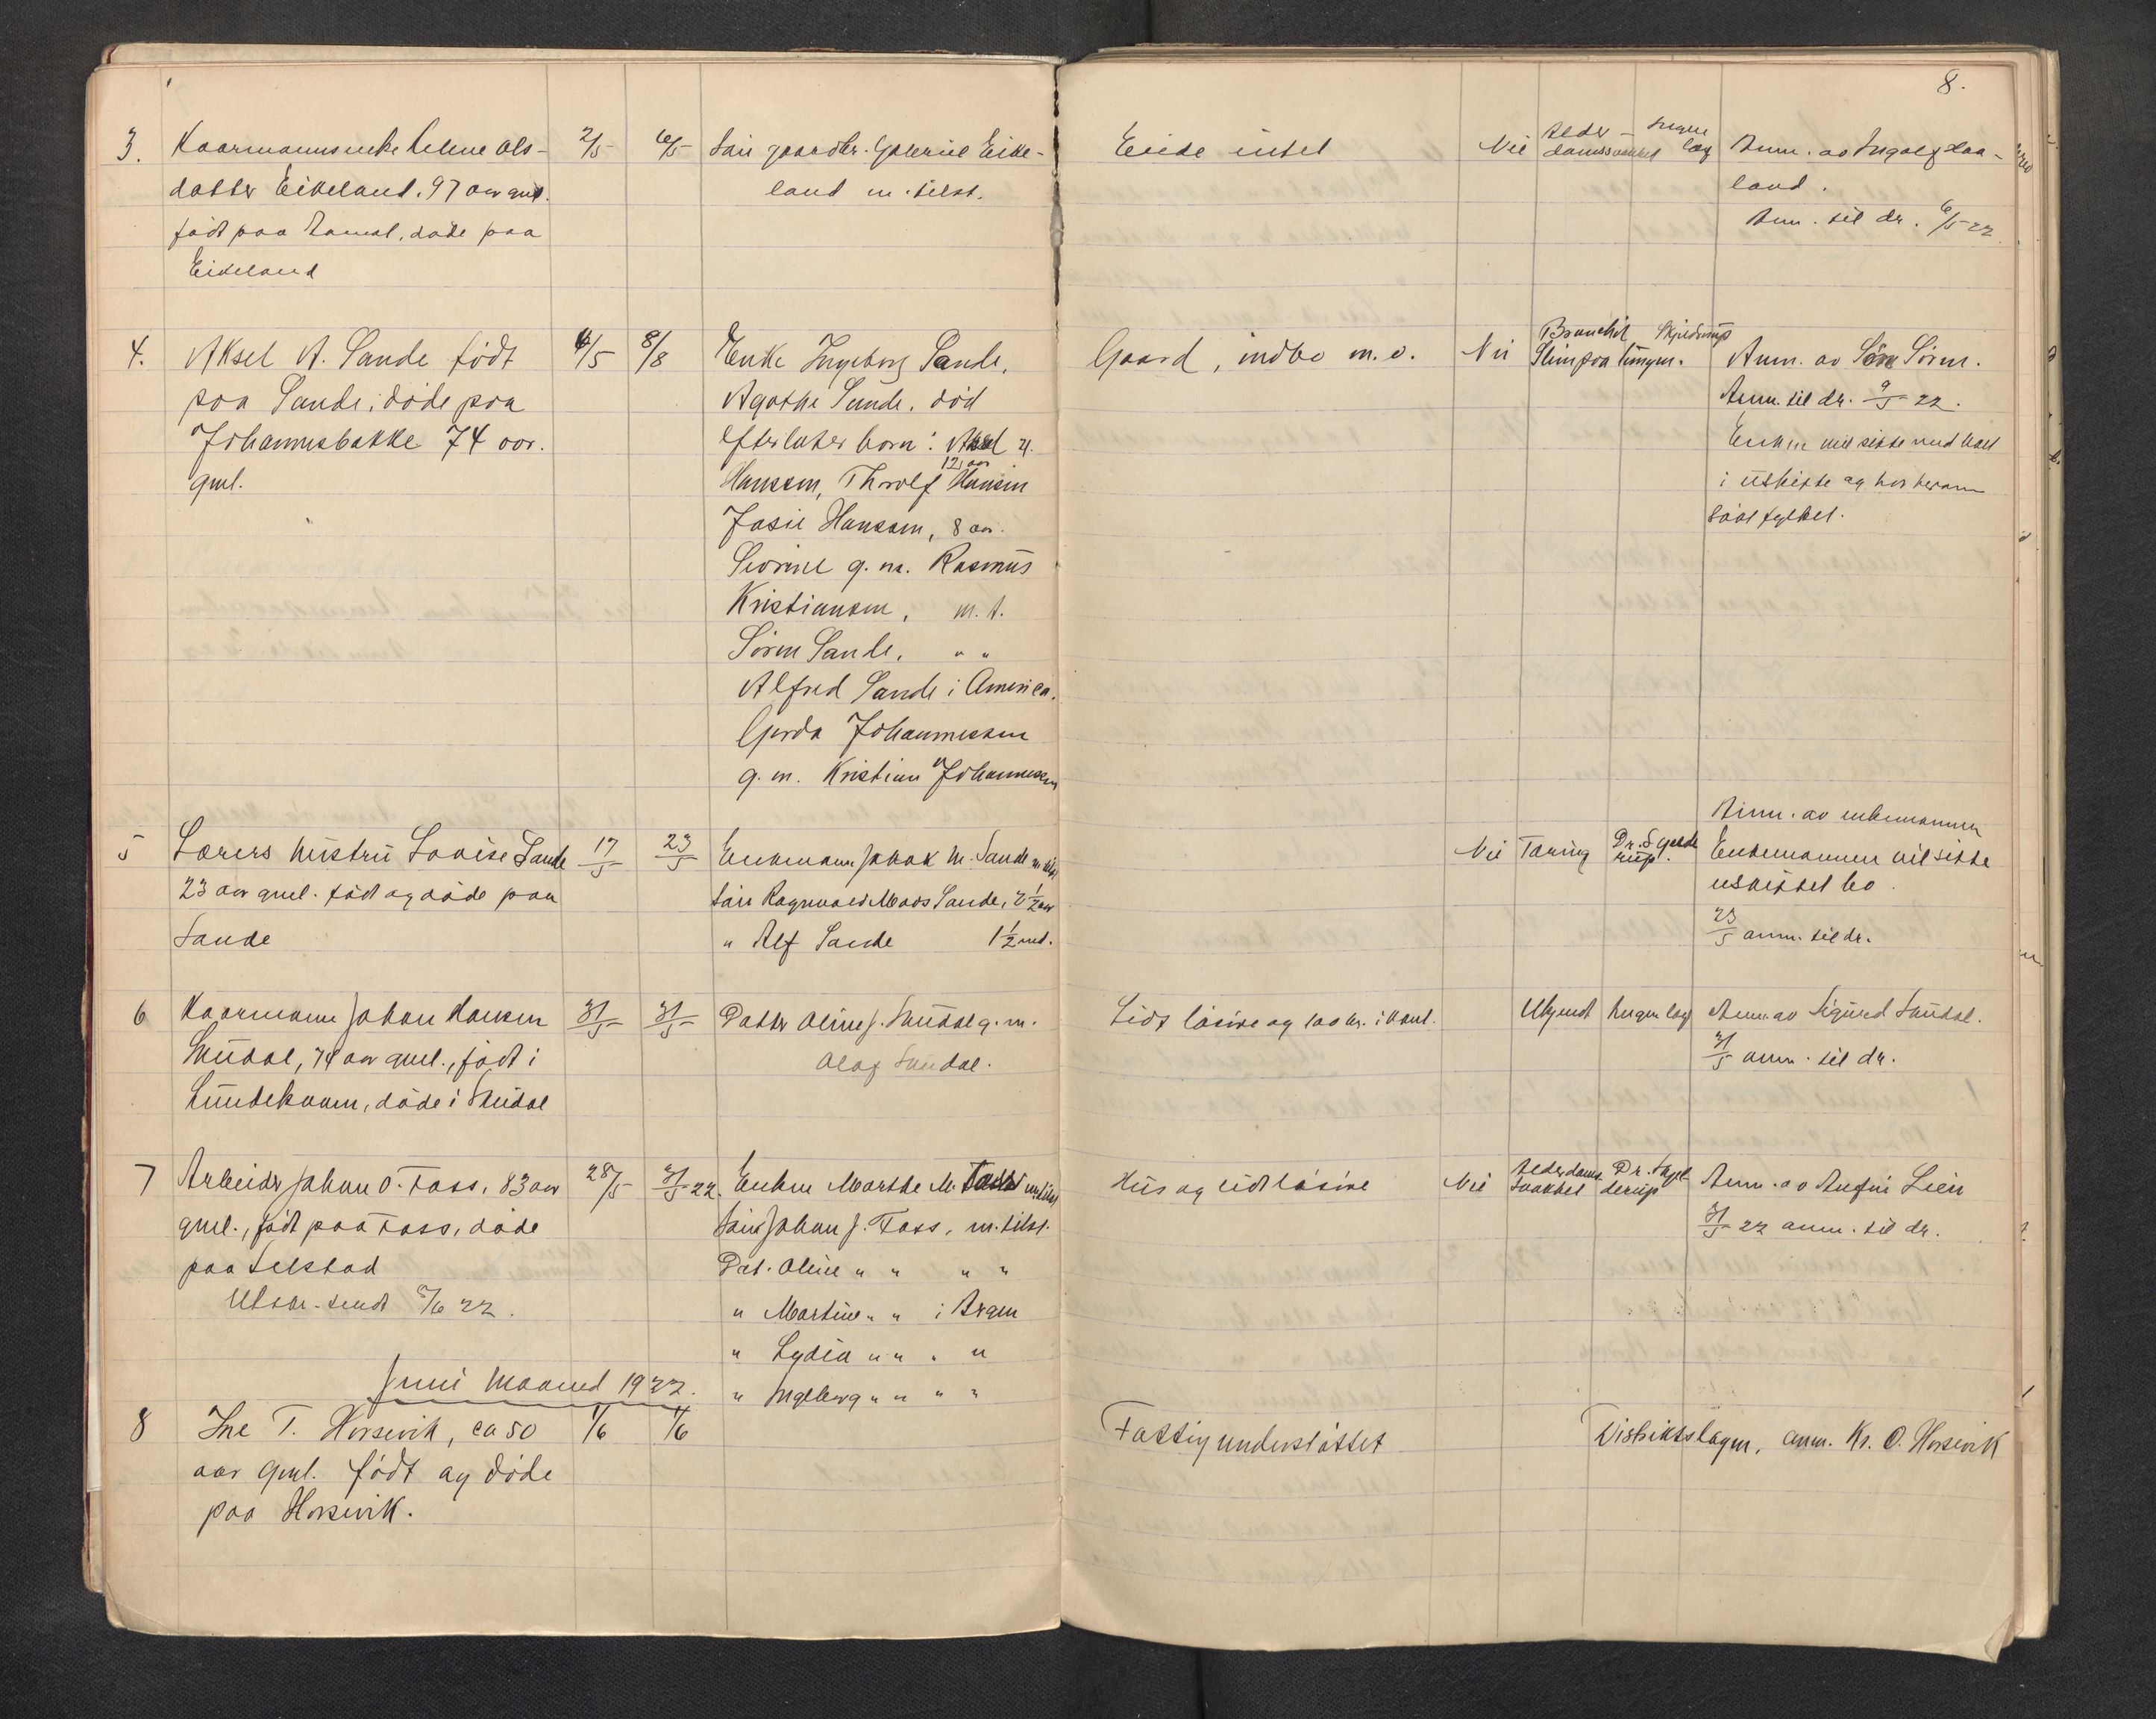 8.
3. Kaarmannsenke Helene Ols-
datter Eikeland. 97 aar gml.
født paa , døde paa
Eikeland
2/5 6/5
Søn gaardbr. Gabriel Eike-
land m. tilst.
Eiede intet
Nei
Alder-
domssvakhet
Ingen
læg
Anm. av Ingolf Haa-
land.
Anm. til dr. 6/5 22
4. Aksel A. Sande født
paa Sande, døde paa
Johannesbakke 74 aar.
gml.
6/5 8/8
Enke Ingeborg Sande,
Agathe Sande. död
efterlater barn: Aksel
12 aar
Hansen, Thorolf Hansen
Josie Hansen, 8 aar.
Severine g. m. Rasmus
Kristiansen, m. t.
Sören Sande, " "
Alfred Sande i America.
Gerda Johannessen
g. m. Kristian Johannessen
Gaard, indbo m. v.
Nei
Bronchit
Slim paa lungen.
Skjeldrup
Anm. av Sören.
Anm. til dr. 9/5 22.
Enken vil sitte med boet
i uskifte og
5 Lærers hustru Lovise Sande
23 aar gml. født og døde paa
Sande
17/5 23/5
Enkemann Jakob M. Sande m. tilst.
Søn Ragnvald Maos Sande, 2 1/2 aar
" Alf Sande 1 1/2 md.
Nei Tæring
Dr. Sgelde
rup.
Anm. av enkemannen
Enkemannen vil sitte
uskiftet bo.
23/5 anm. til dr.
6 Kaarmann Johan Hansen
Sundal, 74 aar gml., født i
Lundekvam, døde i Sundal
31/5 31/5
Datter Oline J. Sundal g. m.
Olaf Sundal.
Lidt løsøre og 100 kr. i kont.
Ukjendt Ingen læg
Anm. av Sigurd Sundal.
31/5 anm. til dr.
7 Arbeider Johan O. Foss, 83 aar
gml., født paa Foss, døde
paa Selstad
Utskr. sendt 3/6 22.
28/5 31/5 22.
Enken Marthe M. Foss m. tilst.
Søn Johan J. Foss, m. tilst.
Dat. Oline " " " "
" Martine " " i Bergen
" Lydia " " " "
" Ingeborg " " " "
Hus og lidt løsøre
Nei
Alderdoms
svakhet
Dr. Sgel-
derup
Anm. av Anfin Lien
31/5 22 anm. til dr.
Juni Maaned 1922.
8 Ine T. Horsevik, ca 50
aar gml. født og døde
paa Horsevik.
1/6 1/6
Fattigunderstøttet
Distriktslægen, anm. Kr. O. Horsevik